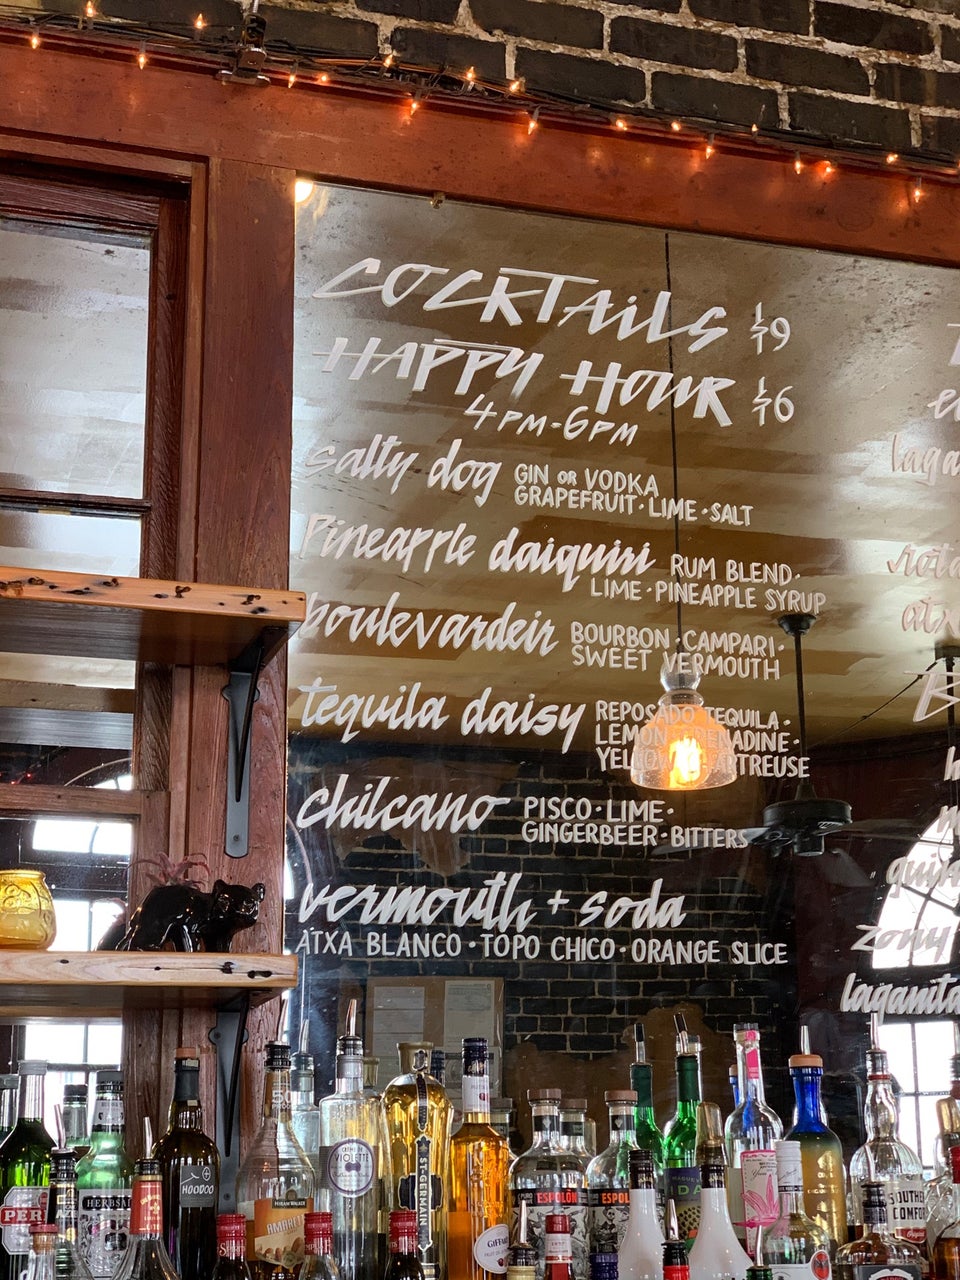 COCKTAILS $9
HAPPY HOUR $6
4PM-6PM
salty dog GIN OR VODKA
GRAPEFRUIT · LIME · SALT
Pineapple daiquiri RUM BLEND ·
LIME · PINEAPPLE SYRUP
boulevardeir BOURBON · CAMPARI ·
SWEET VERMOUTH
tequila daisy REPOSADO TEQUILA ·
LEMON GRENADINE ·
YELLOW CHARTREUSE
chilcano PISCO · LIME ·
GINGERBEER · BITTERS
vermouth + soda
ATXA BLANCO · TOPO CHICO · ORANGE SLICE
zony
HOODOO
VIOLETTE
ST-GERMAIN
ESPOLÒN
ESPOL
HERBSA
PER
AMARET
GIFFARD
SOUTHE
COMFO